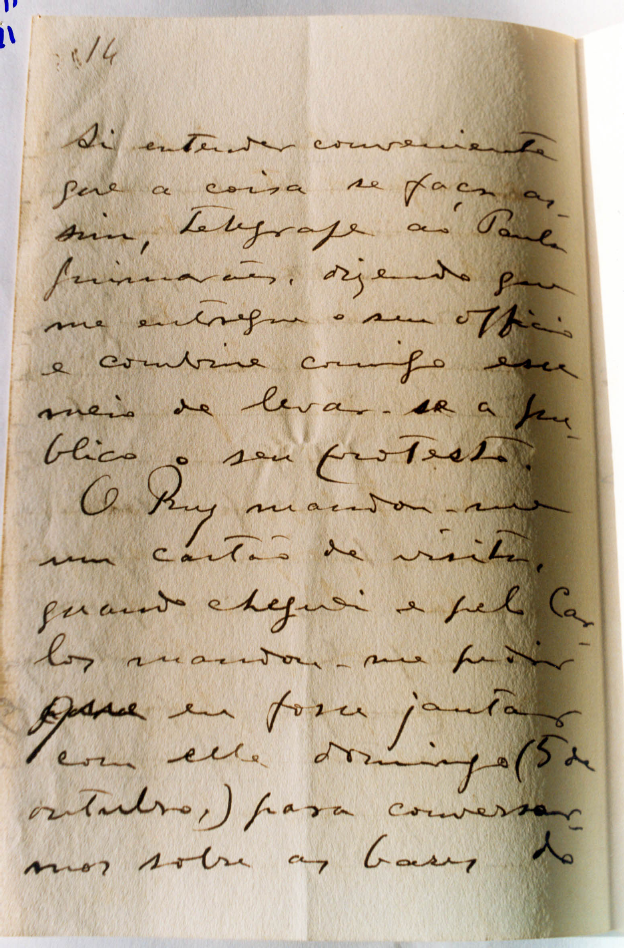 14
Si entender conveniente
que a coisa se faça as-
sim, telegrafe ao Paula
Guimarães, dizendo que
me entregue o seu officio
e combine comigo esse
meio de levar-se a pu-
blico o seu protesto.
O Ruy mandou-me
um cartão de visita,
quando cheguei e pelo Car-
los mandou-me pedir
que eu fosse jantar
com elle domingo (5 de
outubro,) para conversar-
mos sobre as bases do